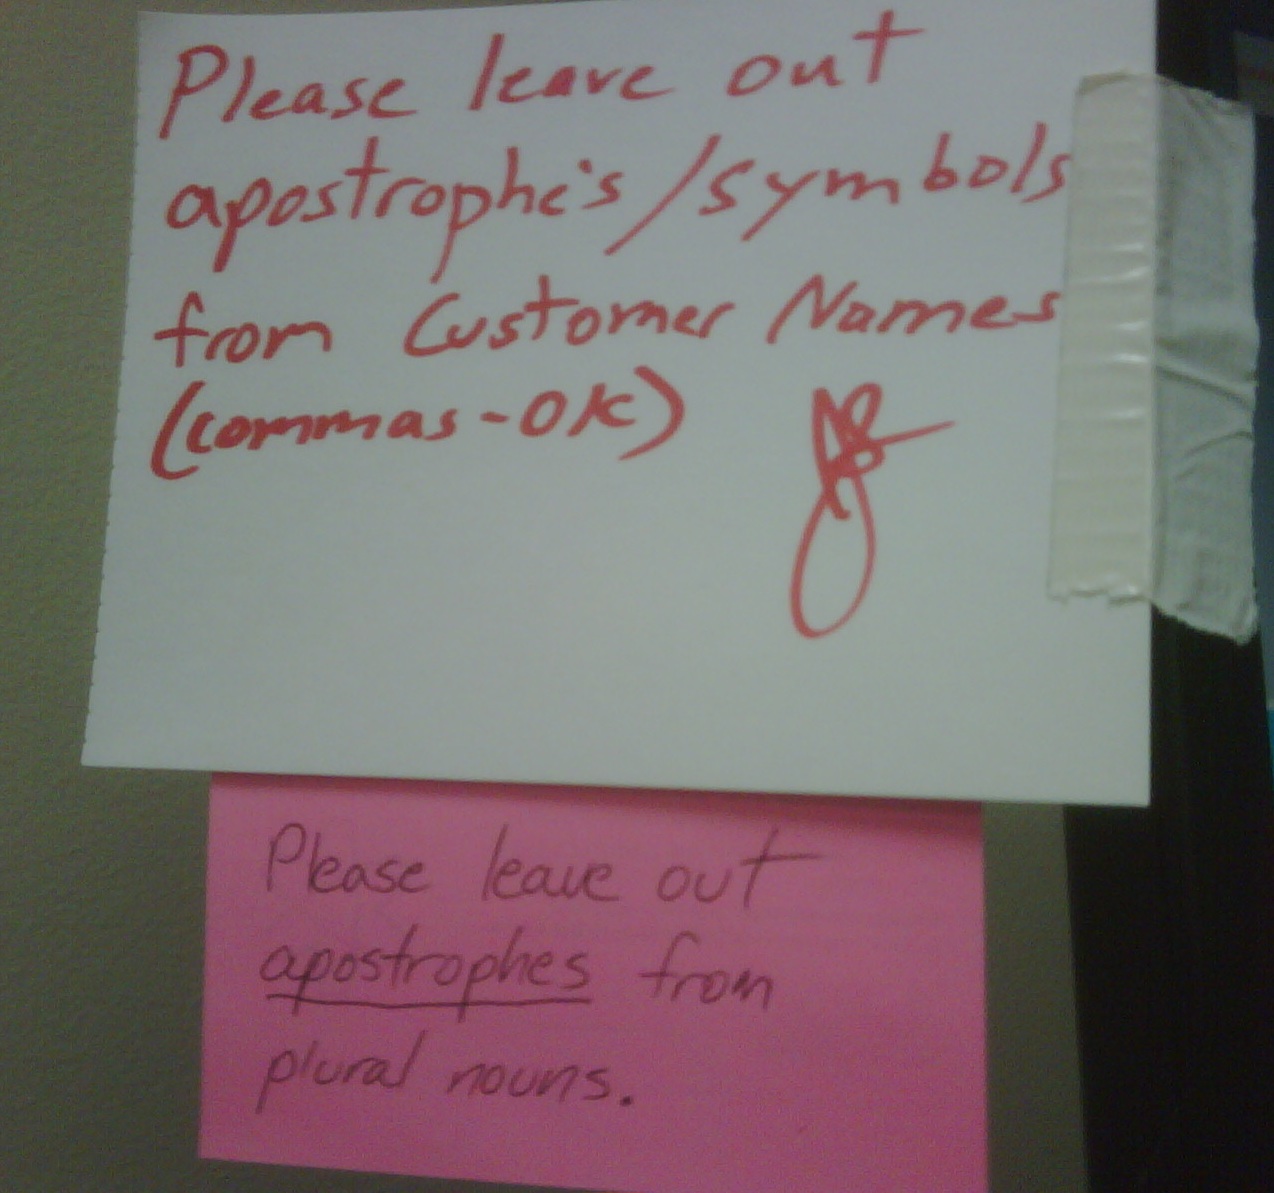 Please leave out
apostrophe's/symbols
from Customer Names
(commas-OK)
Please leave out
apostrophes from
plural nouns.